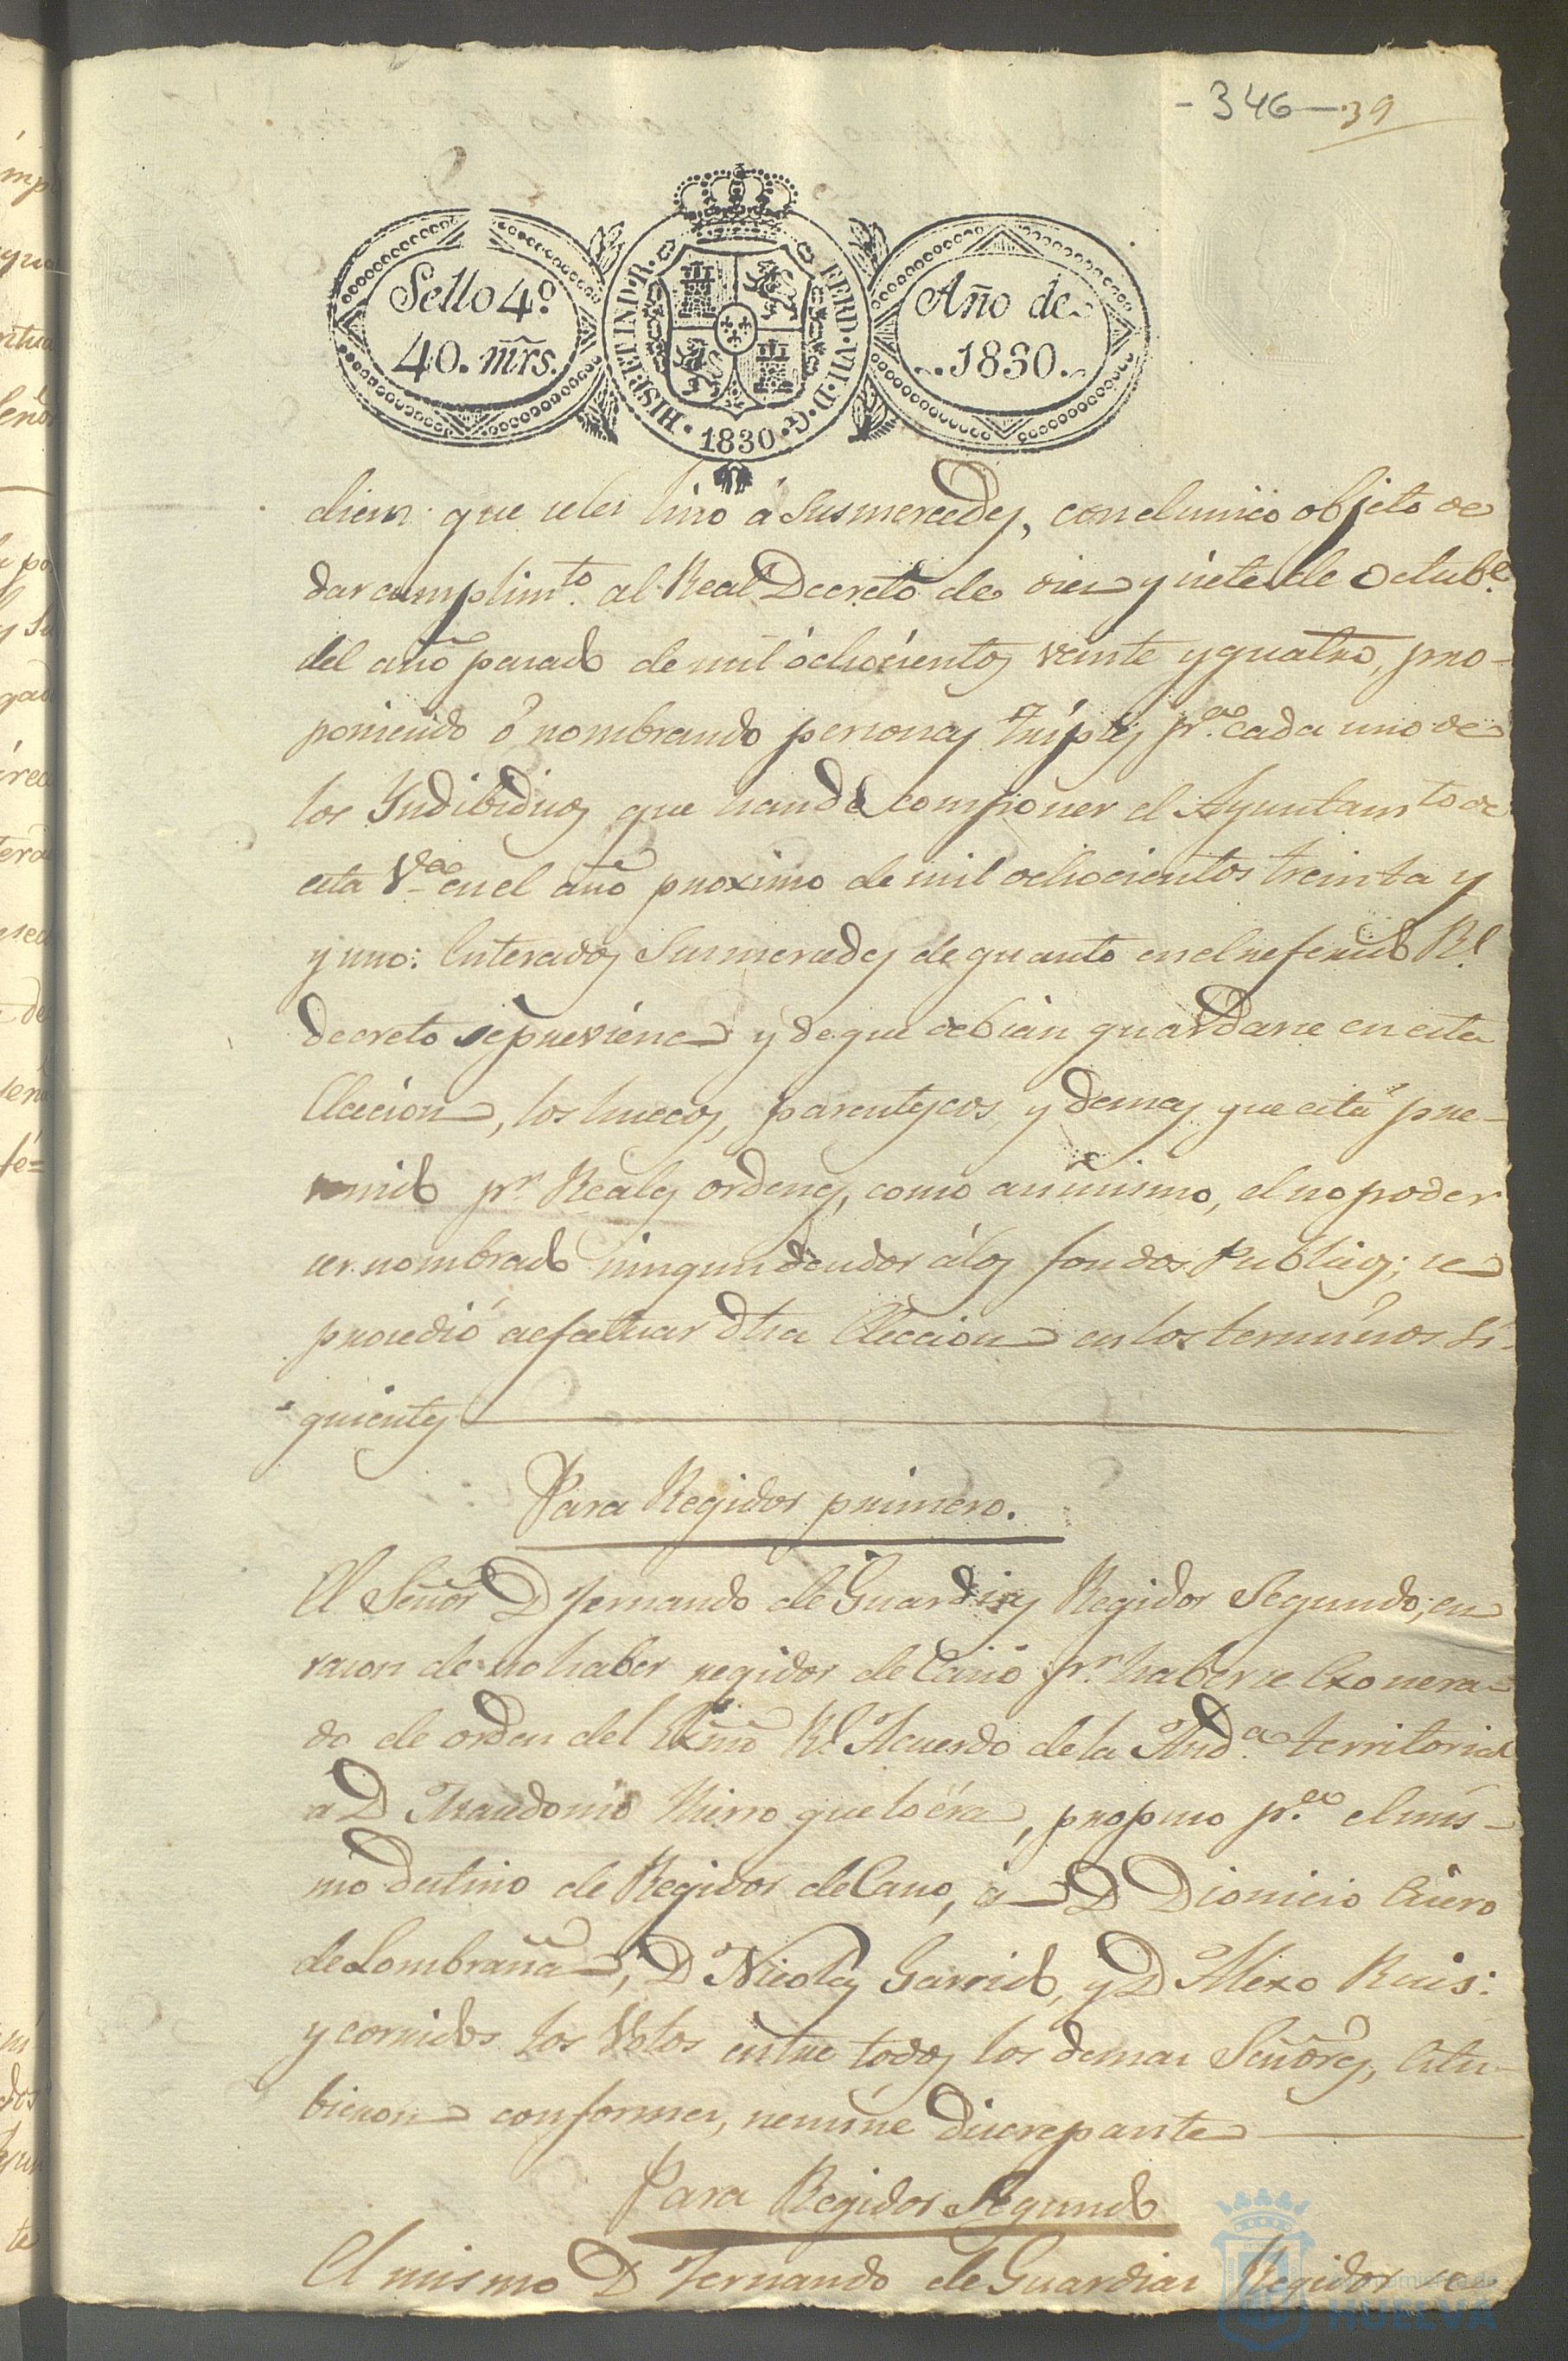 - 346 — 39
Sello 4º
40. mrs.
HISP. ET IND. R. FERD. VII. D. G. 1830
Año de
1830.
diem que se les hiso á Susmercedes, con el unico objeto de
dar cumplimto. al Real Decreto de dies y siete de Octube.
del año pasado de mil ochocientos veinte y quatro, pro-
poniendo ó nombrando personas triples pra. cada uno de
los Yndibiduos que hande componer el Ayuntamto de
esta Va. en el año proximo de mil ochocientos treinta y
y uno: Enterados Susmercedes de quanto en el referido Rl.
decreto se previene y de que debian guardarse en esta
Eleccion, los huecos, parentescos y demas que está pre-
venido pr. Reales ordenes, como asimismo, el no poder
ser nombrado ningun deudor álos fondos Publicos; se
prosedió aefectuar dha Eleccion en los terminos si-
guientes
Para Regidor primero.
El Señor D Fernando de Guardias Regidor Segundo, en
rason de no haber regidor de Cano pr. haberse Exonera-
do de orden del Exmo Rl. Acuerdo de la Auda. territorial
a D Trandonio Mirro que lo éra, propuso pra. el mis-
mo destino de Regidor de Cano, á D Dionicio Cuero
de Lombraña, D Nicolas Garrido, y D Alexo Ruis:
y corridos los Votos entre todos los demas Señores, Estu-
bieron conformes, nemine discrepante
Para Regidor Segundo
El mismo D Fernando de Guardias Regidor
Ayuntamiento de
HUELVA